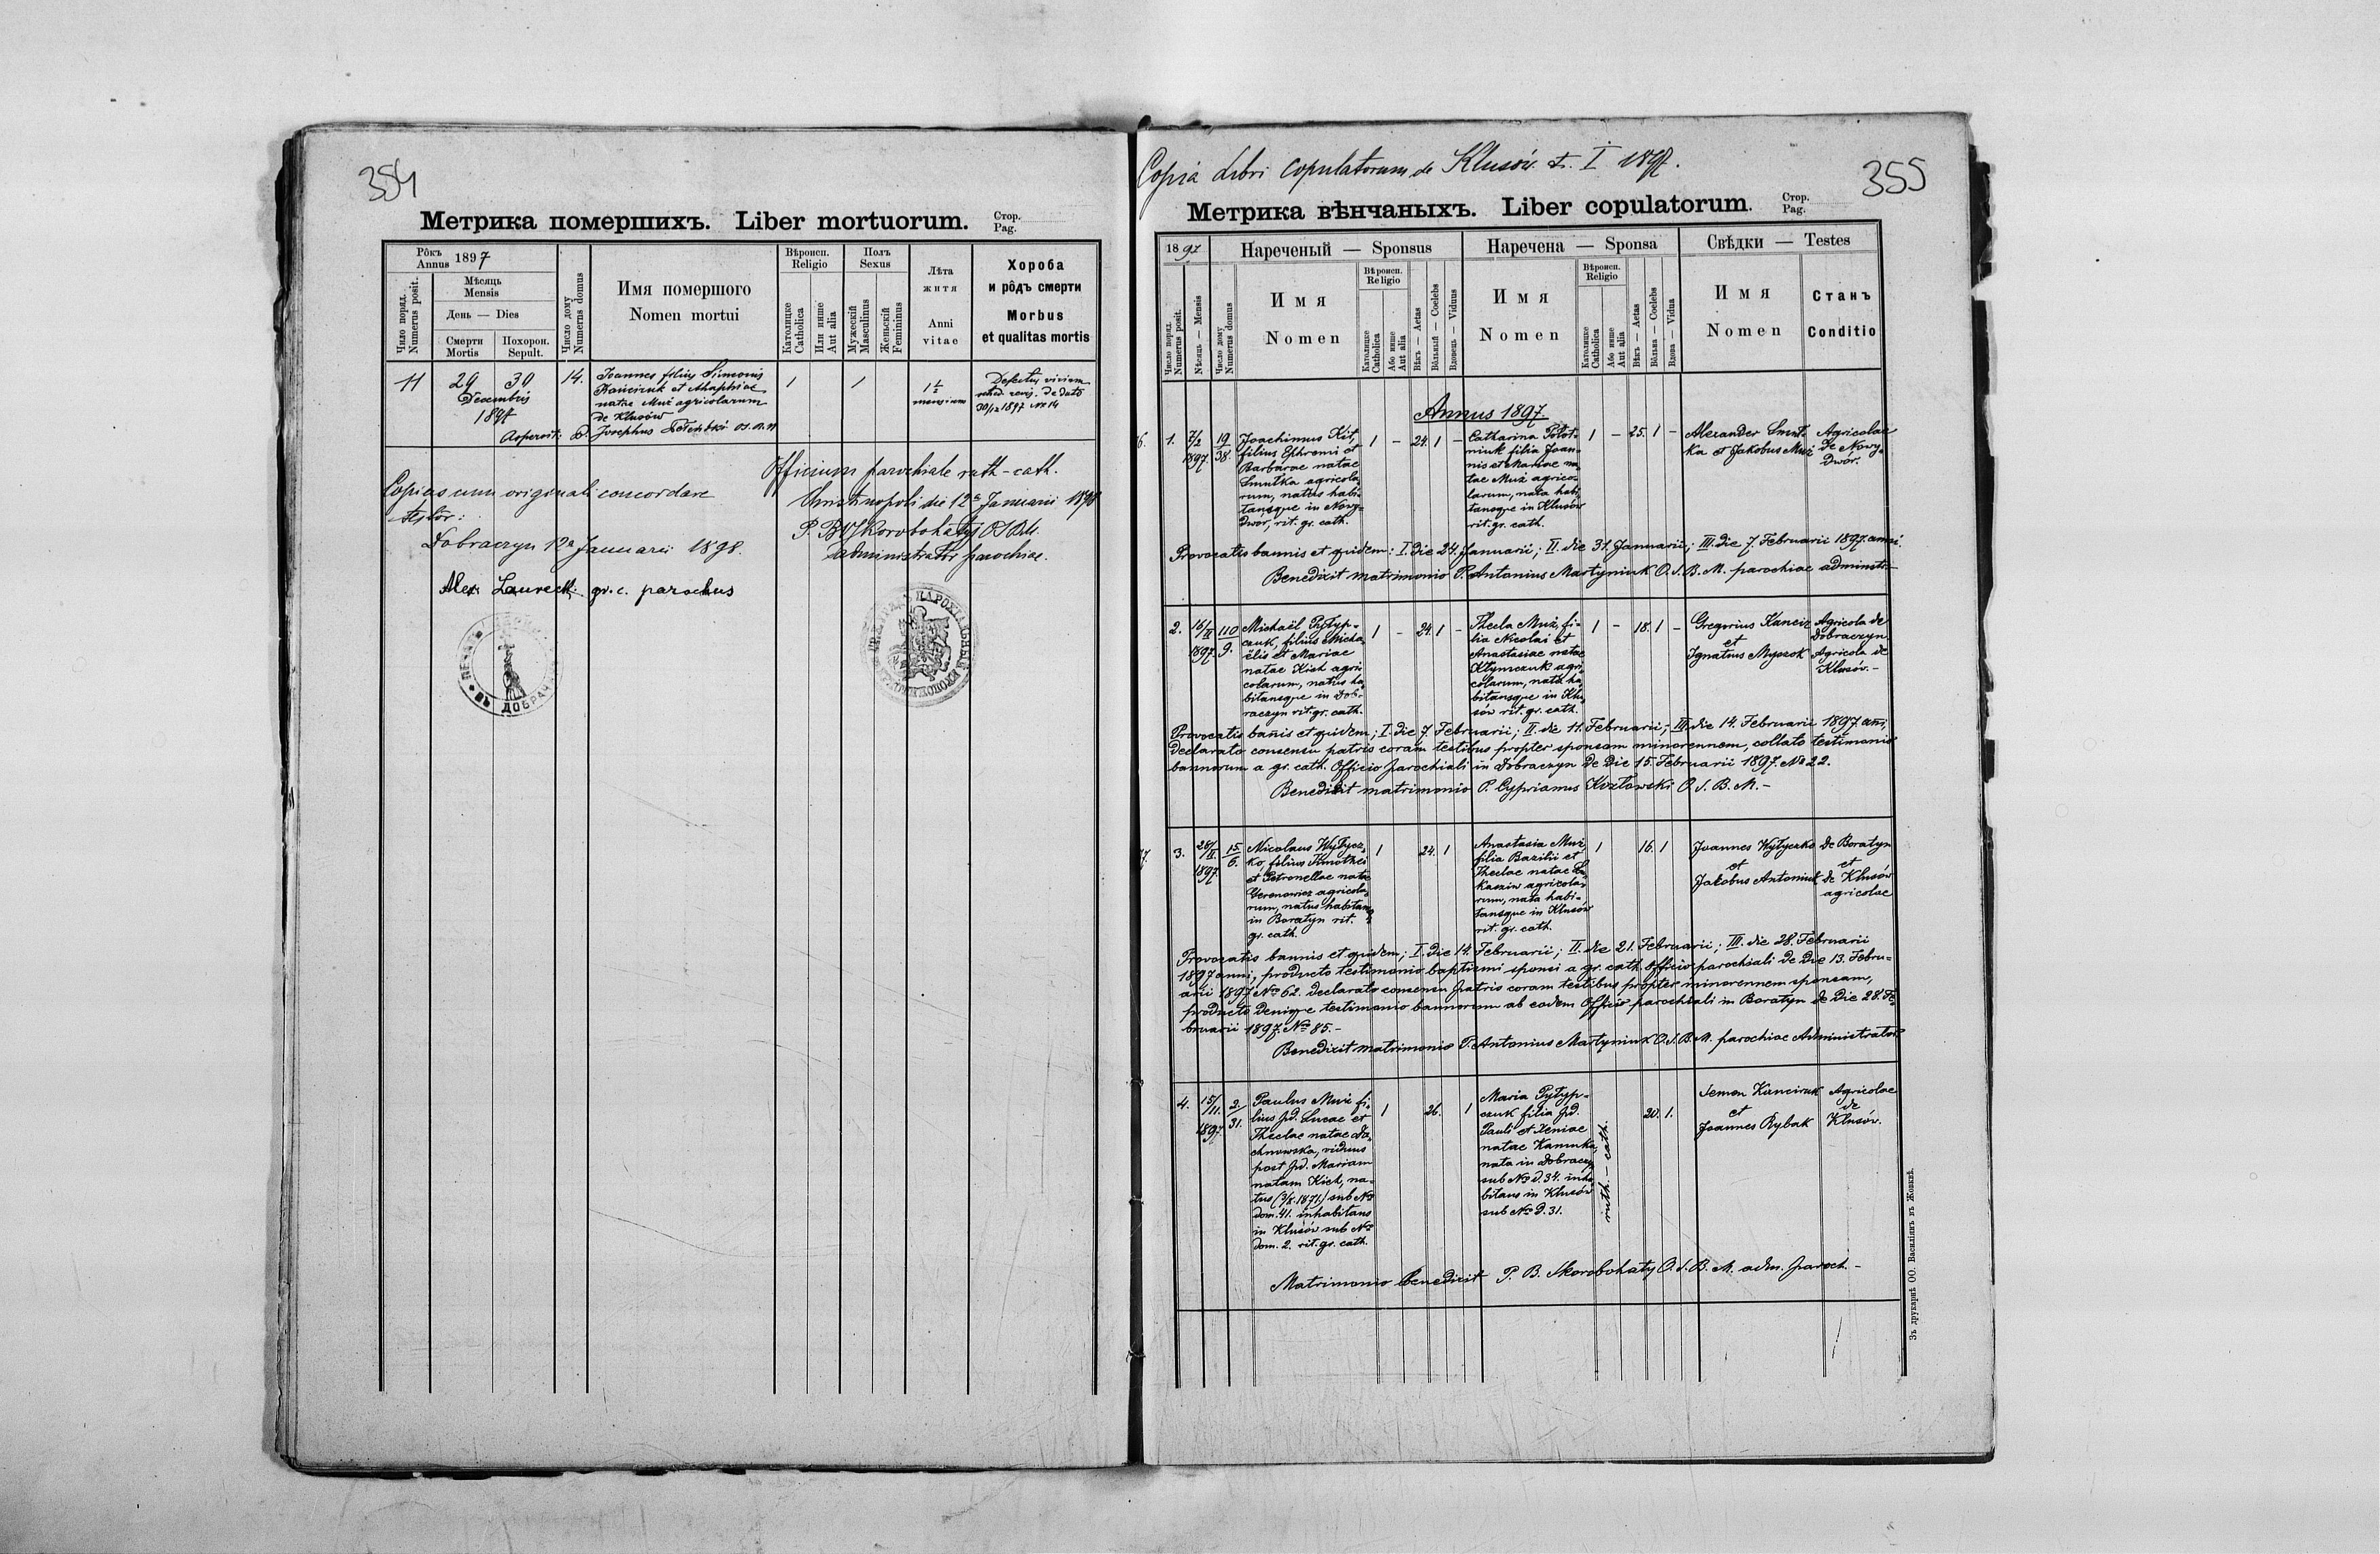 354
Метрика помершихъ. Liber mortuorum.
Стор.
Pag.
Рôкъ
Annus 1897
Мѣсяць
Mensis
День — Dies
Число поряд.
Numerus posit.
Смерти
Mortis
Похорон.
Sepult.
Число дому
Numerus domus
Имя помершого
Nomen mortui
Вѣроисп.
Religio
Католицке
Catholica
Или инше
Aut alia
Полъ
Sexus
Мужескій
Masculinus
Женьскій
Femininus
Лѣта
житя
Anni
vitae
Хороба
и рôдъ смерти
Morbus
et qualitas mortis
11
29
30
Decembris
1897
14.
Joannes filius Simonis
Kanciruk et Ahaphiae
natae Muż agricolarum
de Klusów
P. Josephus O.S.B.M
1
1
1½
mensium
Defectus virium
de dato
30/12 1897 № 14
Copias cum originali concordare
testor:
Dobraczyn 12a Januarii 1898.
Alex: Laureck. gr. c. parochus
Officium parochiale ruth-cath.
Christinopoli die 12a Januarii 1898
P. B. Skorobohatyj OSBM.
administrator parochiae.
355
Copia Libri copulatorum de Klusów. t. I 1897.
Метрика вѣнчаныхъ. Liber copulatorum.
Стор.
Pag.
1897
Нареченый — Sponsus
Наречена — Sponsa
Свѣдки — Testes
Число поряд.
Numerus posit.
Мѣсяць — Mensis
Число дому
Numerus domus
Имя
Nomen
Вѣроисп.
Religio
Католицке
Catholica
Або инше
Aut alia
Вѣкъ — Aetas
Вôльный — Coelebs
Вдовець — Viduus
Имя
Nomen
Вѣроисп.
Religio
Католицке
Catholica
Або инше
Aut alia
Вѣкъ — Aetas
Вôльна — Coelebs
Вдова — Vidua
Имя
Nomen
Станъ
Conditio
Annus 1897
1.
7/2
1897.
19
38.
Joachimus Kit,
filius Ephremi et
Barbarae natae
Smutka agricola-
rum, natus habi-
tansque in Nowy-
Dwór, rit. gr. cath.
1 - 24. 1 -
Catharina Połot-
niuk filia Joan-
nis et Mariae na-
tae Muż agrico-
larum, nata habi-
tansque in Klusów
rit. gr. cath.
1 - 25. 1 -
Alexander Smut-
ka et Jakobus Muż
Agricolae
de Nowy-
Dwór.
Provocatis bannis et quidem: I. die 24. Januarii; II. die 31. Januarii; III. die 7. Februarii 1897. anni.
Benedixit matrimonio P. Antonius Martyniuk O.S.B.M. parochiae adminstr-
2.
16/II
1897.
110
9.
Michaël Pyłyp-
czuk, filius Micha-
ëlis et Mariae
natae Kich agri-
colarum, natus ha-
bitansque in Dob-
raczyn rit. gr. cath.
1 - 24. 1 -
Thecla Muż, fi-
lia Nicolai et
Anastasiae natae
Kłymczuk agri-
colarum, nata ha-
bitansque in Klu-
sów rit. gr. cath.
1 - 18. 1 -
Gregorius Kancir
et
Ignatius Myszok
Agricola de
Dobraczyn.
Agricola de
Klusów.-
Provocatis bañis et quidem; I. die 7. Februarii; II. die 11. Februarii; III. die 14. Februarii 1897. añi,
declarato consensu patris coram testibus propter sponsam minorennem, collato testimonio
bannorum a gr. cath. Officio parochiali in Dobraczyn de die 15. Februarii 1897. № 22.
Benedixit matrimonio P. Cyprianus Kozłowski O.S.B.M.-
3.
28/II.
1897.
15
6.
Nicolaus Wytycz-
ko, filius Timothei
et Petronellae natae
Yeronowicz agricola-
rum, natus habitans
in Boratyn rit.
gr. cath.
1 24. 1
Anastasia Muż
filia Bazilii et
Theclae natae Łu-
kasziw agricola-
rum, nata habi-
tansque in Klusów
rit. gr. cath.
1 16. 1
Joannes Wytyczko
et
Jakobus Antoniuk
de Boratyn
et
de Klusów
agricolae
Provocatis bannis et quidem; I. die 14. Februarii; II. die 21. Februarii; III. die 28. Februarii
1897 anni, producto testimonio baptismi sponsi a gr. cath. officio parochiali de die 13. Febru-
arii 1897 № 62. declarato consensu patris coram testibus propter minorennem sponsam,
producto denique testimonio bannorum ab eodem Officio parochiali in Boratyn de die 28. Fe-
bruarii 1897. № 85.-
Benedixit matrimonio P. Antonius Martyniuk O.S.B.M. parochiae Administrator
4.
15/11.
1897.
2.
31.
Paulus Muż fi-
lius pd. Lucae et
Theclae natae Da-
chnowska, viduus
post pd. Mariam
natam Kich, na-
tus (3/X. 1871.) sub №
dom. 41. inhabitans
in Klusów sub №
dom. 2. rit. gr. cath.
1 26. 1
Maria Pyłyp-
czuk filia pd.
Pauli et Xeniae
natae Kaminka,
nata in Dobraczyn
sub № d. 34. inha-
bitans in Klusów
sub № d. 31.
ruth.-cath.
20. 1.
Semen Kanciruk
et
Joannes Rybak
Agricolae
de
Klusów.
Matrimonio benedixit P. B. Skorobohatyj O.S.B.M. adm. paroch.-
Зъ друкарнѣ ОО. Василіянъ въ Жовквѣ.